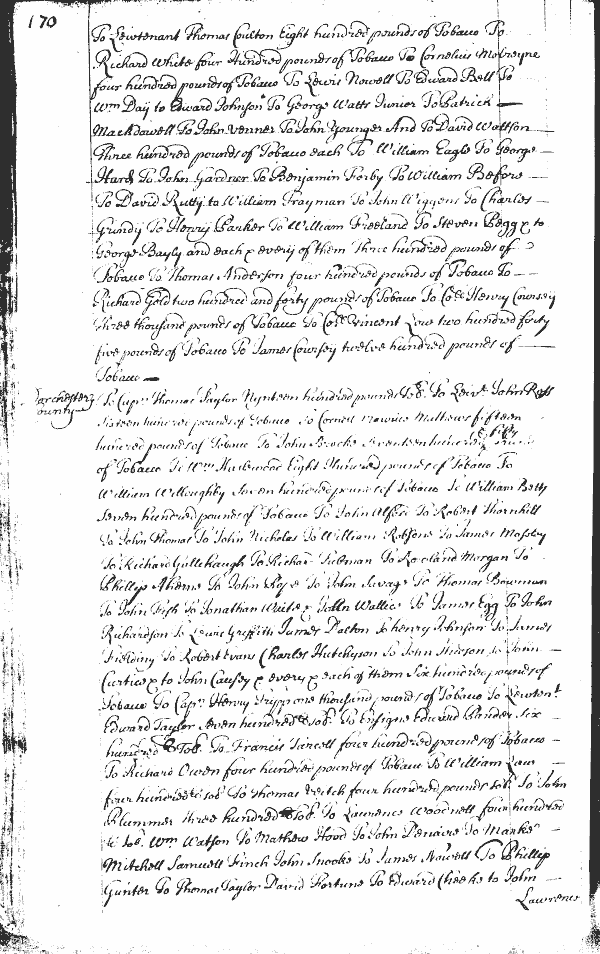 170
To Lewtenant Thomas Coulton Eight hundred pounds of Tobaco To
Richard White four Hundred pounds of Tobaco To Cornelius
four hundred pounds of Tobaco To Lewis Nowell To Edward Bell To
Wm Day to Edward Johnson To George Watts Junior To Patrick
Mackdowell To John Venner To John Younger And To David Wattson
Three hundred pounds of Tobacco each To William Eagle To George
Hards To John Gardner To Benjamin To William Before
To David Rutty to William Frayman To John Wiggens To Charles
Grundy To Henry Parker To William Freeland To Steven Begg & to
George Bayly and each & every of them Three hundred pounds of
Tobaco To Thomas Anderson four hundred pounds of Tobaco To
Richard Gold two hundred and forty pounds of Tobaco To Coll Henry Coursey
three thousand pounds of Tobaco To Coll Vincent Low two hundred forty
five pounds of Tobaco To James Coursey twelve hundred pounds of
Tobaco
Dorchester
County
To Capn Thomas Taylor Nynteen hundred pounds Tob. To Leivt John Ross
Sixteen hundred pounds of Tobaco To Cornett Mathews fifteen
hundred pounds of Tobaco To John Brooke Seventeen hundred & fifty
of Tobacco To Wm Eight Hundred pounds of Tobaco To
William Willoughby Seven hundred pounds of Tobaco To William Betty
Seven hundred pounds of Tobaco To John To Robert Thornhill
To John Thomas To John Nicholas To William Robsone To James Mossley
To Richard To Richard To Rowland Morgan To
Phillip To John To John Savage To Thomas Bowman
To John Fish To Jonathan & John Wallice To James Egg To John
Richardson To Lewis Griffith James Dalton To henry Johnson To James
Fielding To Robert Evans Charles Hutchyson To John To John
Curtice & to John Causey & every & each of them Six hundred pounds of
Tobaco To Capn Henry Tripp one thousand pounds of Tobaco To Lewtent
Edward Taylor Seven hundred Tob. To Ensigne Edward six
hundred Tob. To Francis four hundred pounds of Tobacco
To Richard Owen four hundred pounds of Tobaco To William Law
four hundred Tob To Thomas Veitch four hundred pounds Tob. To John
Plummer three hundred Tob. To Laurence Woodnett four hundred
Tob. Wm Watson To Mathew Hood To John To Marke
Mitchell Samuell Finch John Snooke To James Nowell To Phillip
Gunter To Thomas Taylor David Fortune To Edward Cheeke to John
Lawrence